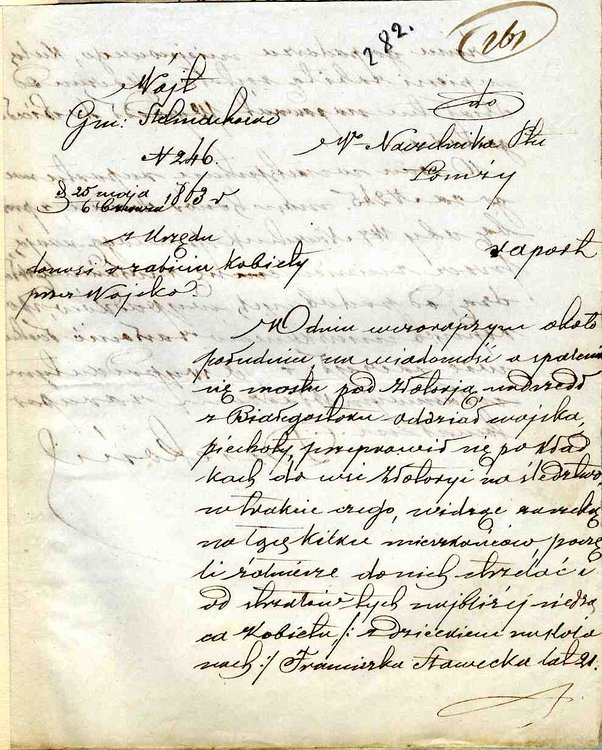 282.
261
Wójt
Gm: Stelmachowo
N 246.
d 25 maja
6 Czerwca 1863 r
z Urzędu
donosi o zabiciu kobiety
przez Wojsko?
do
Wo Naczelnika Ptu
Łomży
raport
W dniu wczorajszym około
południa na wiadomość o spaleniu
się mostu pod Złotorją, nadszedł
z Białegostoku oddział wojska,
piechoty, przeprawił się po kład
kach do wsi Złotoryi na śledztwo
w trakcie czego, widząc za rzeką
na łące kilku mieszkańców, poczę
li żołnierze do nich strzelać i
od strzałów tych najbliżej siedzą
ca kobieta /: z dzieckiem na kola
nach :/ Franciszka Sawecka lat 21.